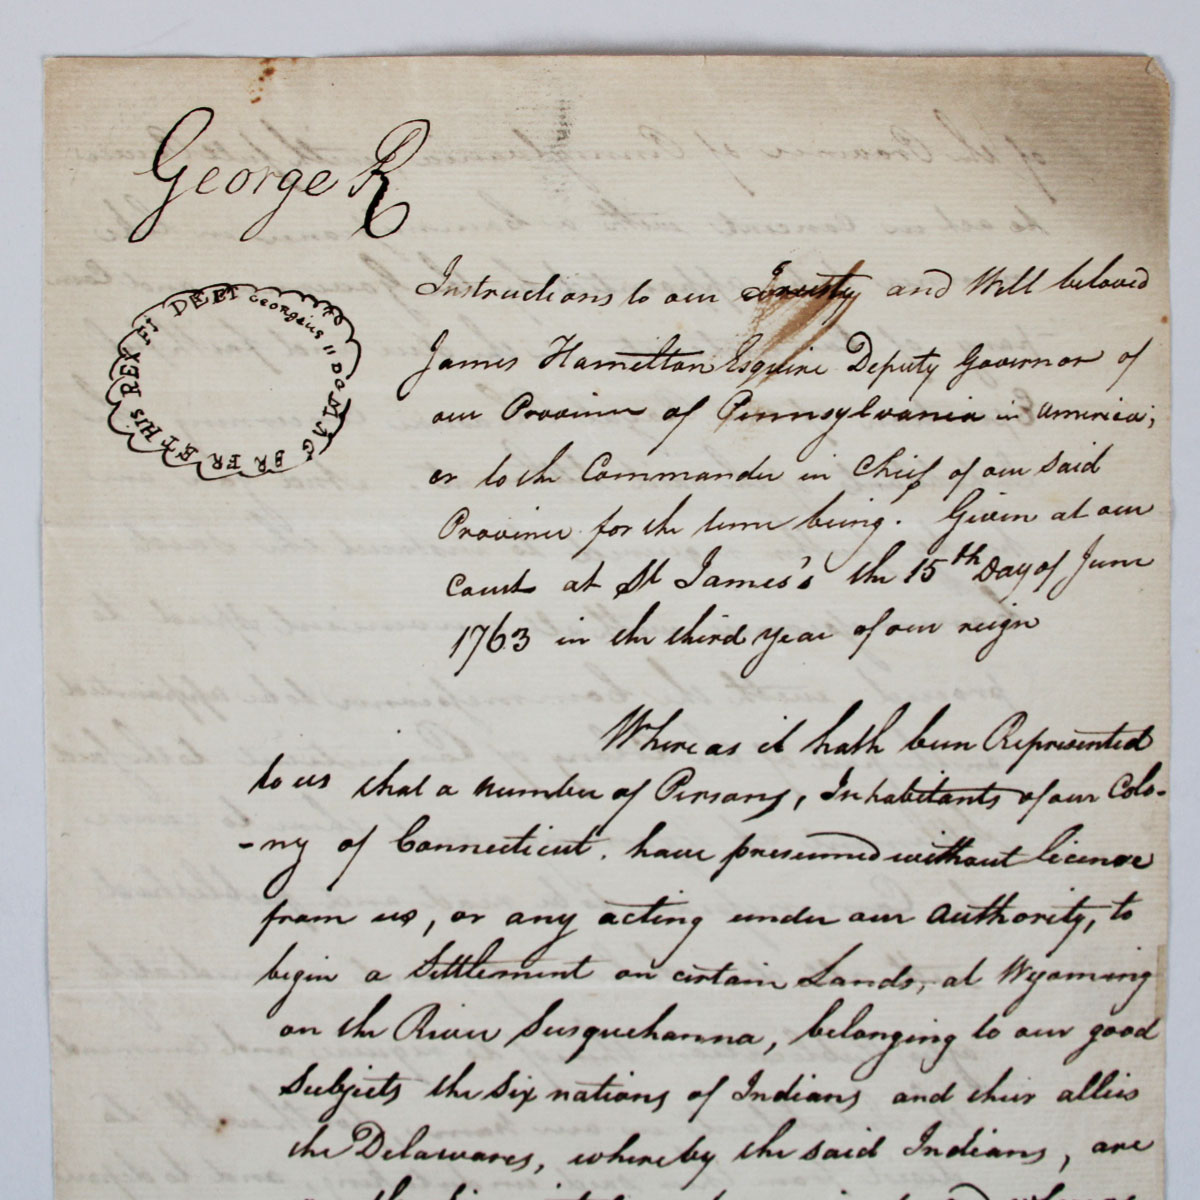 George R
DEEI Georgeius II D G MAG BR FR ET HIS REX
Instructions to our Trusty and Well beloved
James Hamelton Esquire Deputy Governor of
our Province of Pennsylvania in america;
or to the Commander in Chief of our said
Province for the time being. Given at our
Court at St James's the 15th Day of June
1763 in the third year of our reign
Whereas it hath been Represented
to us that a number of Persons, Inhabitants of our Colo-
-ny of Connecticut. have presumed without licence
from us, or any acting under our authority, to
begin a Settlement on certain Lands, at Wyoming
on the River Susquehanna, belonging to our good
Subjects the Six nations of Indians and their allies
the Delawares, whereby the said Indians, are